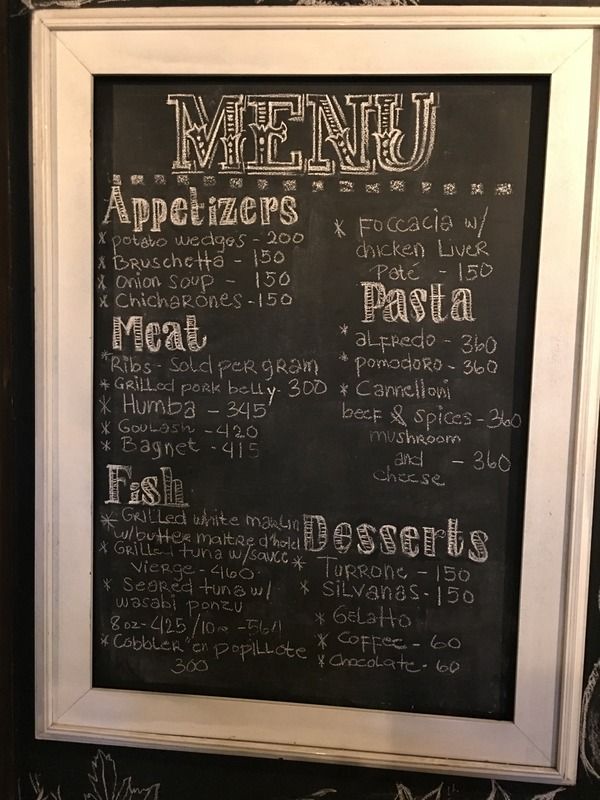 MENU
Appetizers
* potato wedges - 200
* Bruschetta - 150
* onion soup - 150
* Chicharones - 150
* Foccacia w/
chicken Liver
Paté - 150
Meat
* Ribs - Sold per gram
* Grilled pork belly - 300
* Humba - 345
* Goulash - 420
* Bagnet - 415
Pasta
* aLfredo - 360
* pomodoro - 360
* Cannelloni
beef & spices - 360
mushroom
and - 360
cheese
Fish
* Grilled white marlin
w/butter maitre d'hotel
* Grilled tuna w/sauce
vierge - 460
* Seared tuna w/
wasabi ponzu
8oz - 425/10oz - 564
* Cobbler "en papillote
300
Desserts
* Turrone - 150
* Silvanas - 150
* Gelatto
* Coffee - 60
* Chocolate - 60